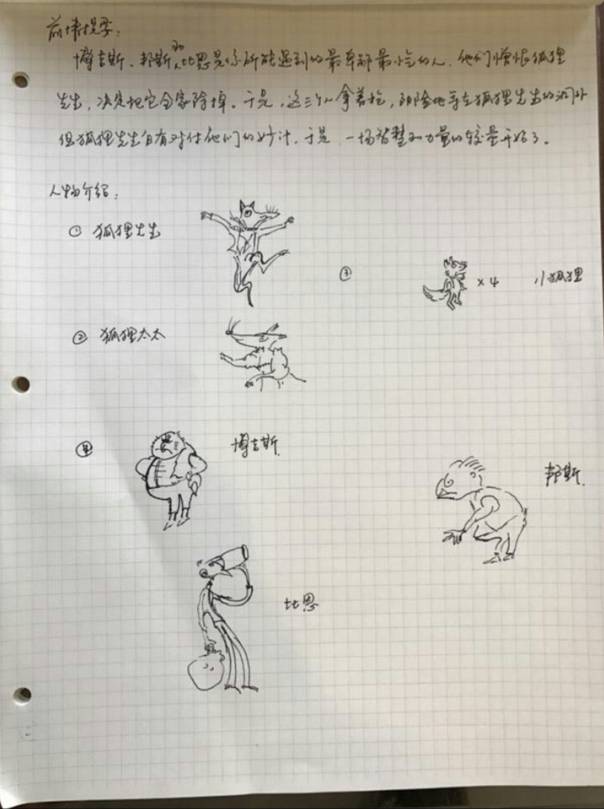 前情提要:
博吉斯、邦斯和比恩是你所能遇到的最卑鄙最小气的人,他们憎恨狐狸
先生,决定把它全家除掉。于是,这三个人拿着枪,阴险地守在狐狸先生的洞外
但狐狸先生自有对付他们的妙计,于是,一场智慧和力量的较量开始了。
人物介绍:
① 狐狸先生
③ ×4 小狐狸
② 狐狸太太
④ 博吉斯.
邦斯.
比恩